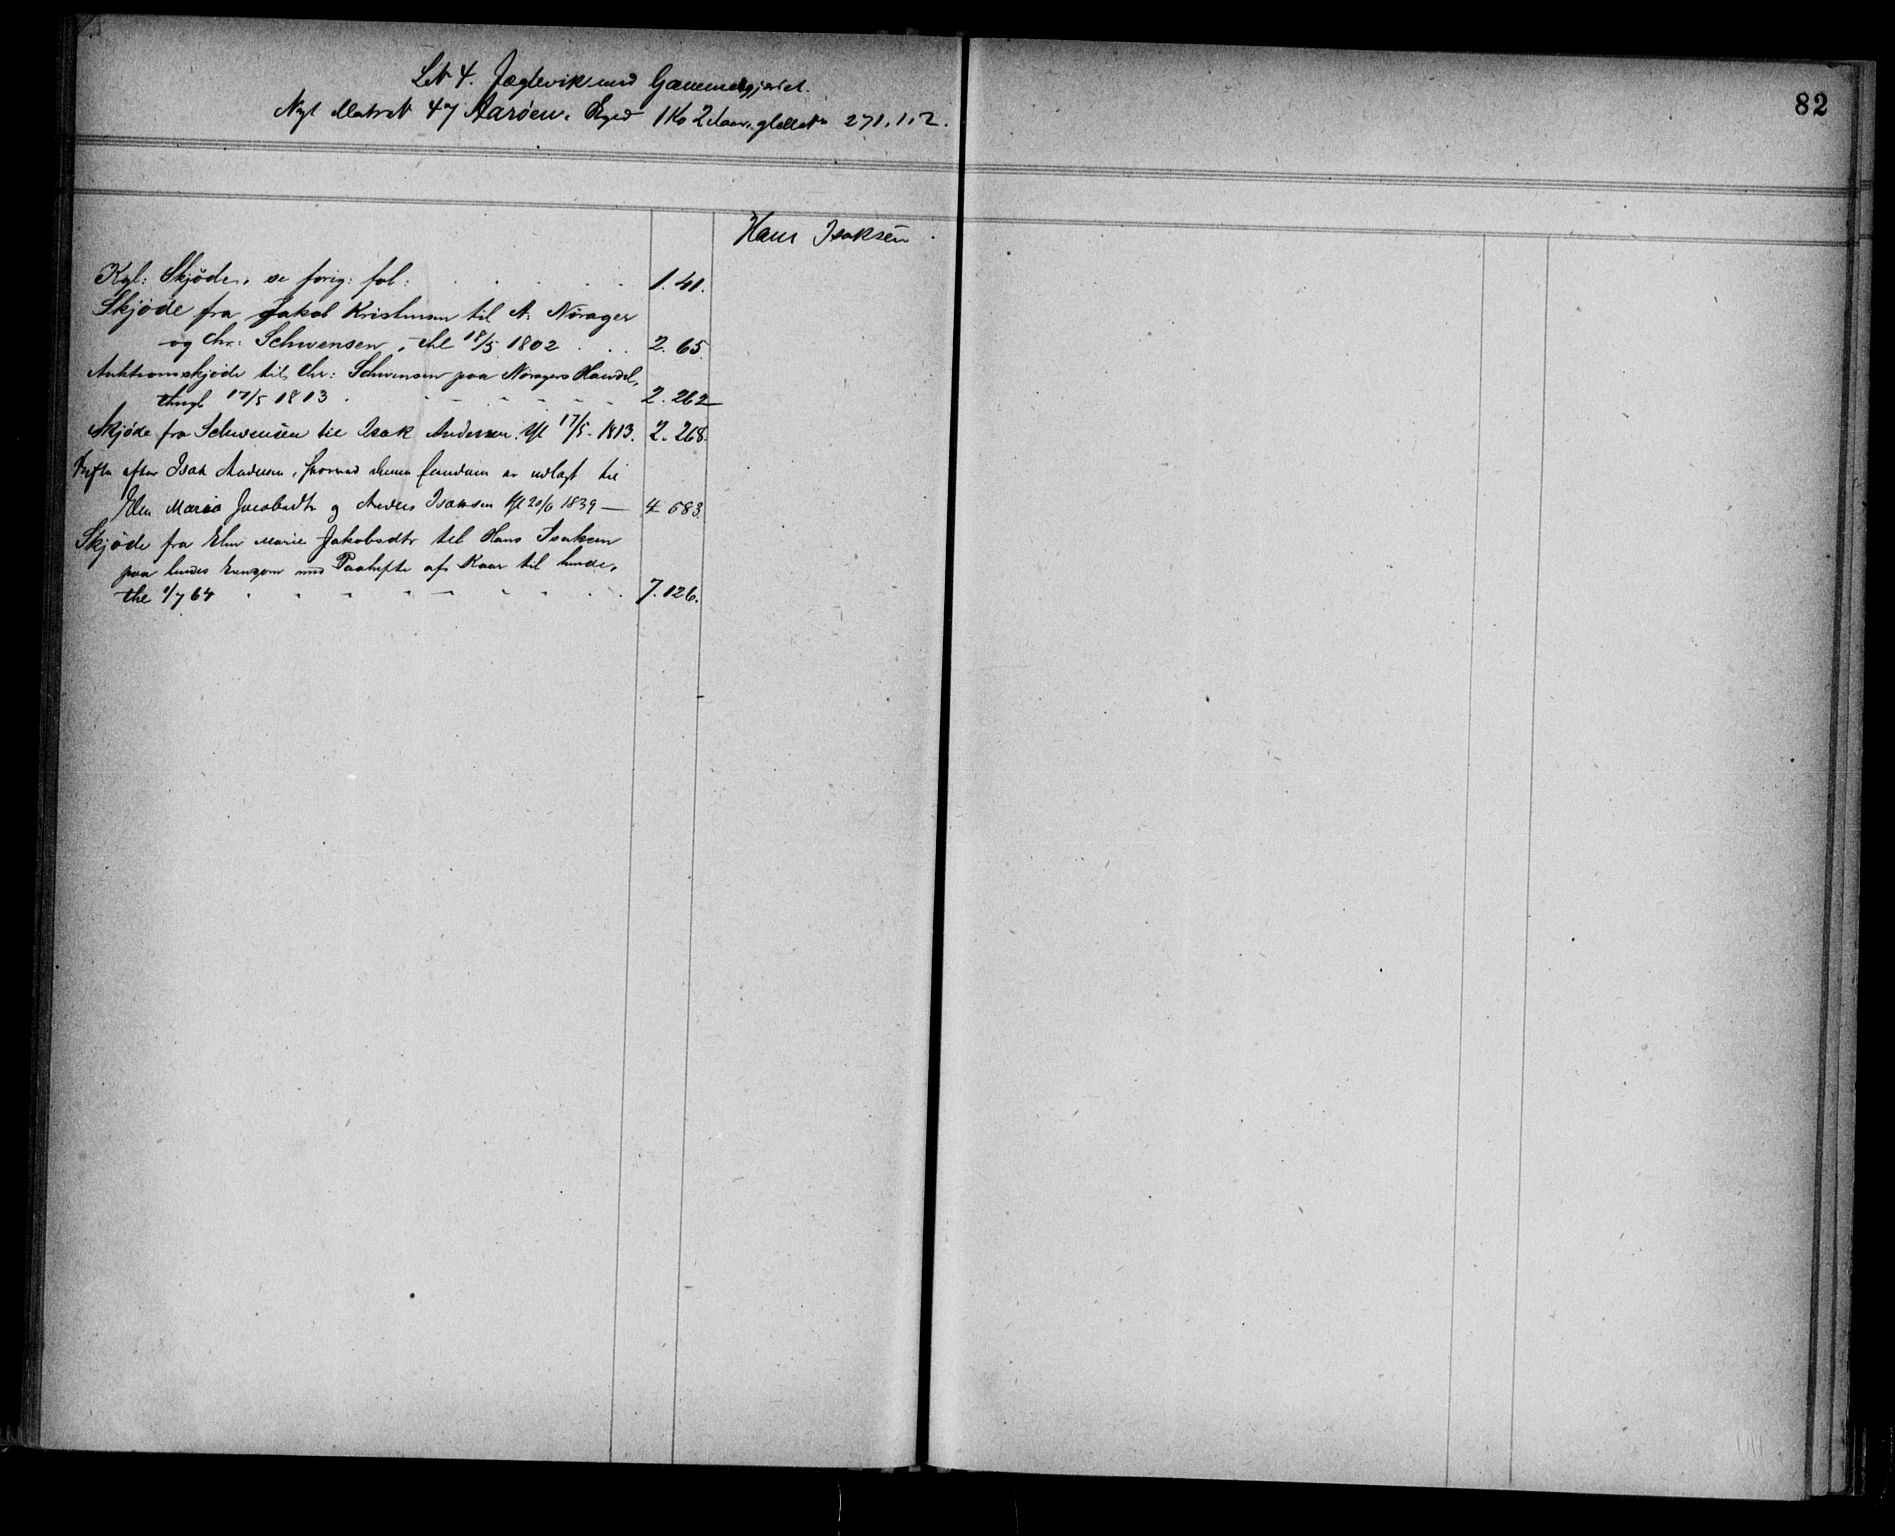 LN 4. Jægtevik med Gammelgjærdet.
Nyt Matr N 47 Aarøen. Byd 1 Ko 2 Faar, gl Matr 271.1.2.
82
Hans Isaksen.
Kgl: Skjøde, se forig: fol: 1. 41.
Skjøde fra Jakob Kristensen til N: Nørager
og Chr: Schwensen, thl 18/5 1802 . . . 2. 65.
Auktionsskjøde til Chr: Schwensen paa Nøragers Handel,
thingl 17/5 1813 . 2. 262
Skjøde fra Schwensen til Isak Andersen. thl 17/5 1813. 2. 268.
Skifte efter Isak Andersen, hvorved denne Eiendom er udlagt til
Elen Maria Jacobsdtr og Anders Isaksen thl 20/6 1839 — 4 583.
Skjøde fra Elen Marie Jakobsdtr til Hans Isaksen
paa hendes Eiendom med Paahefte af Kaar til hende,
thl 1/7 64 7. 126.